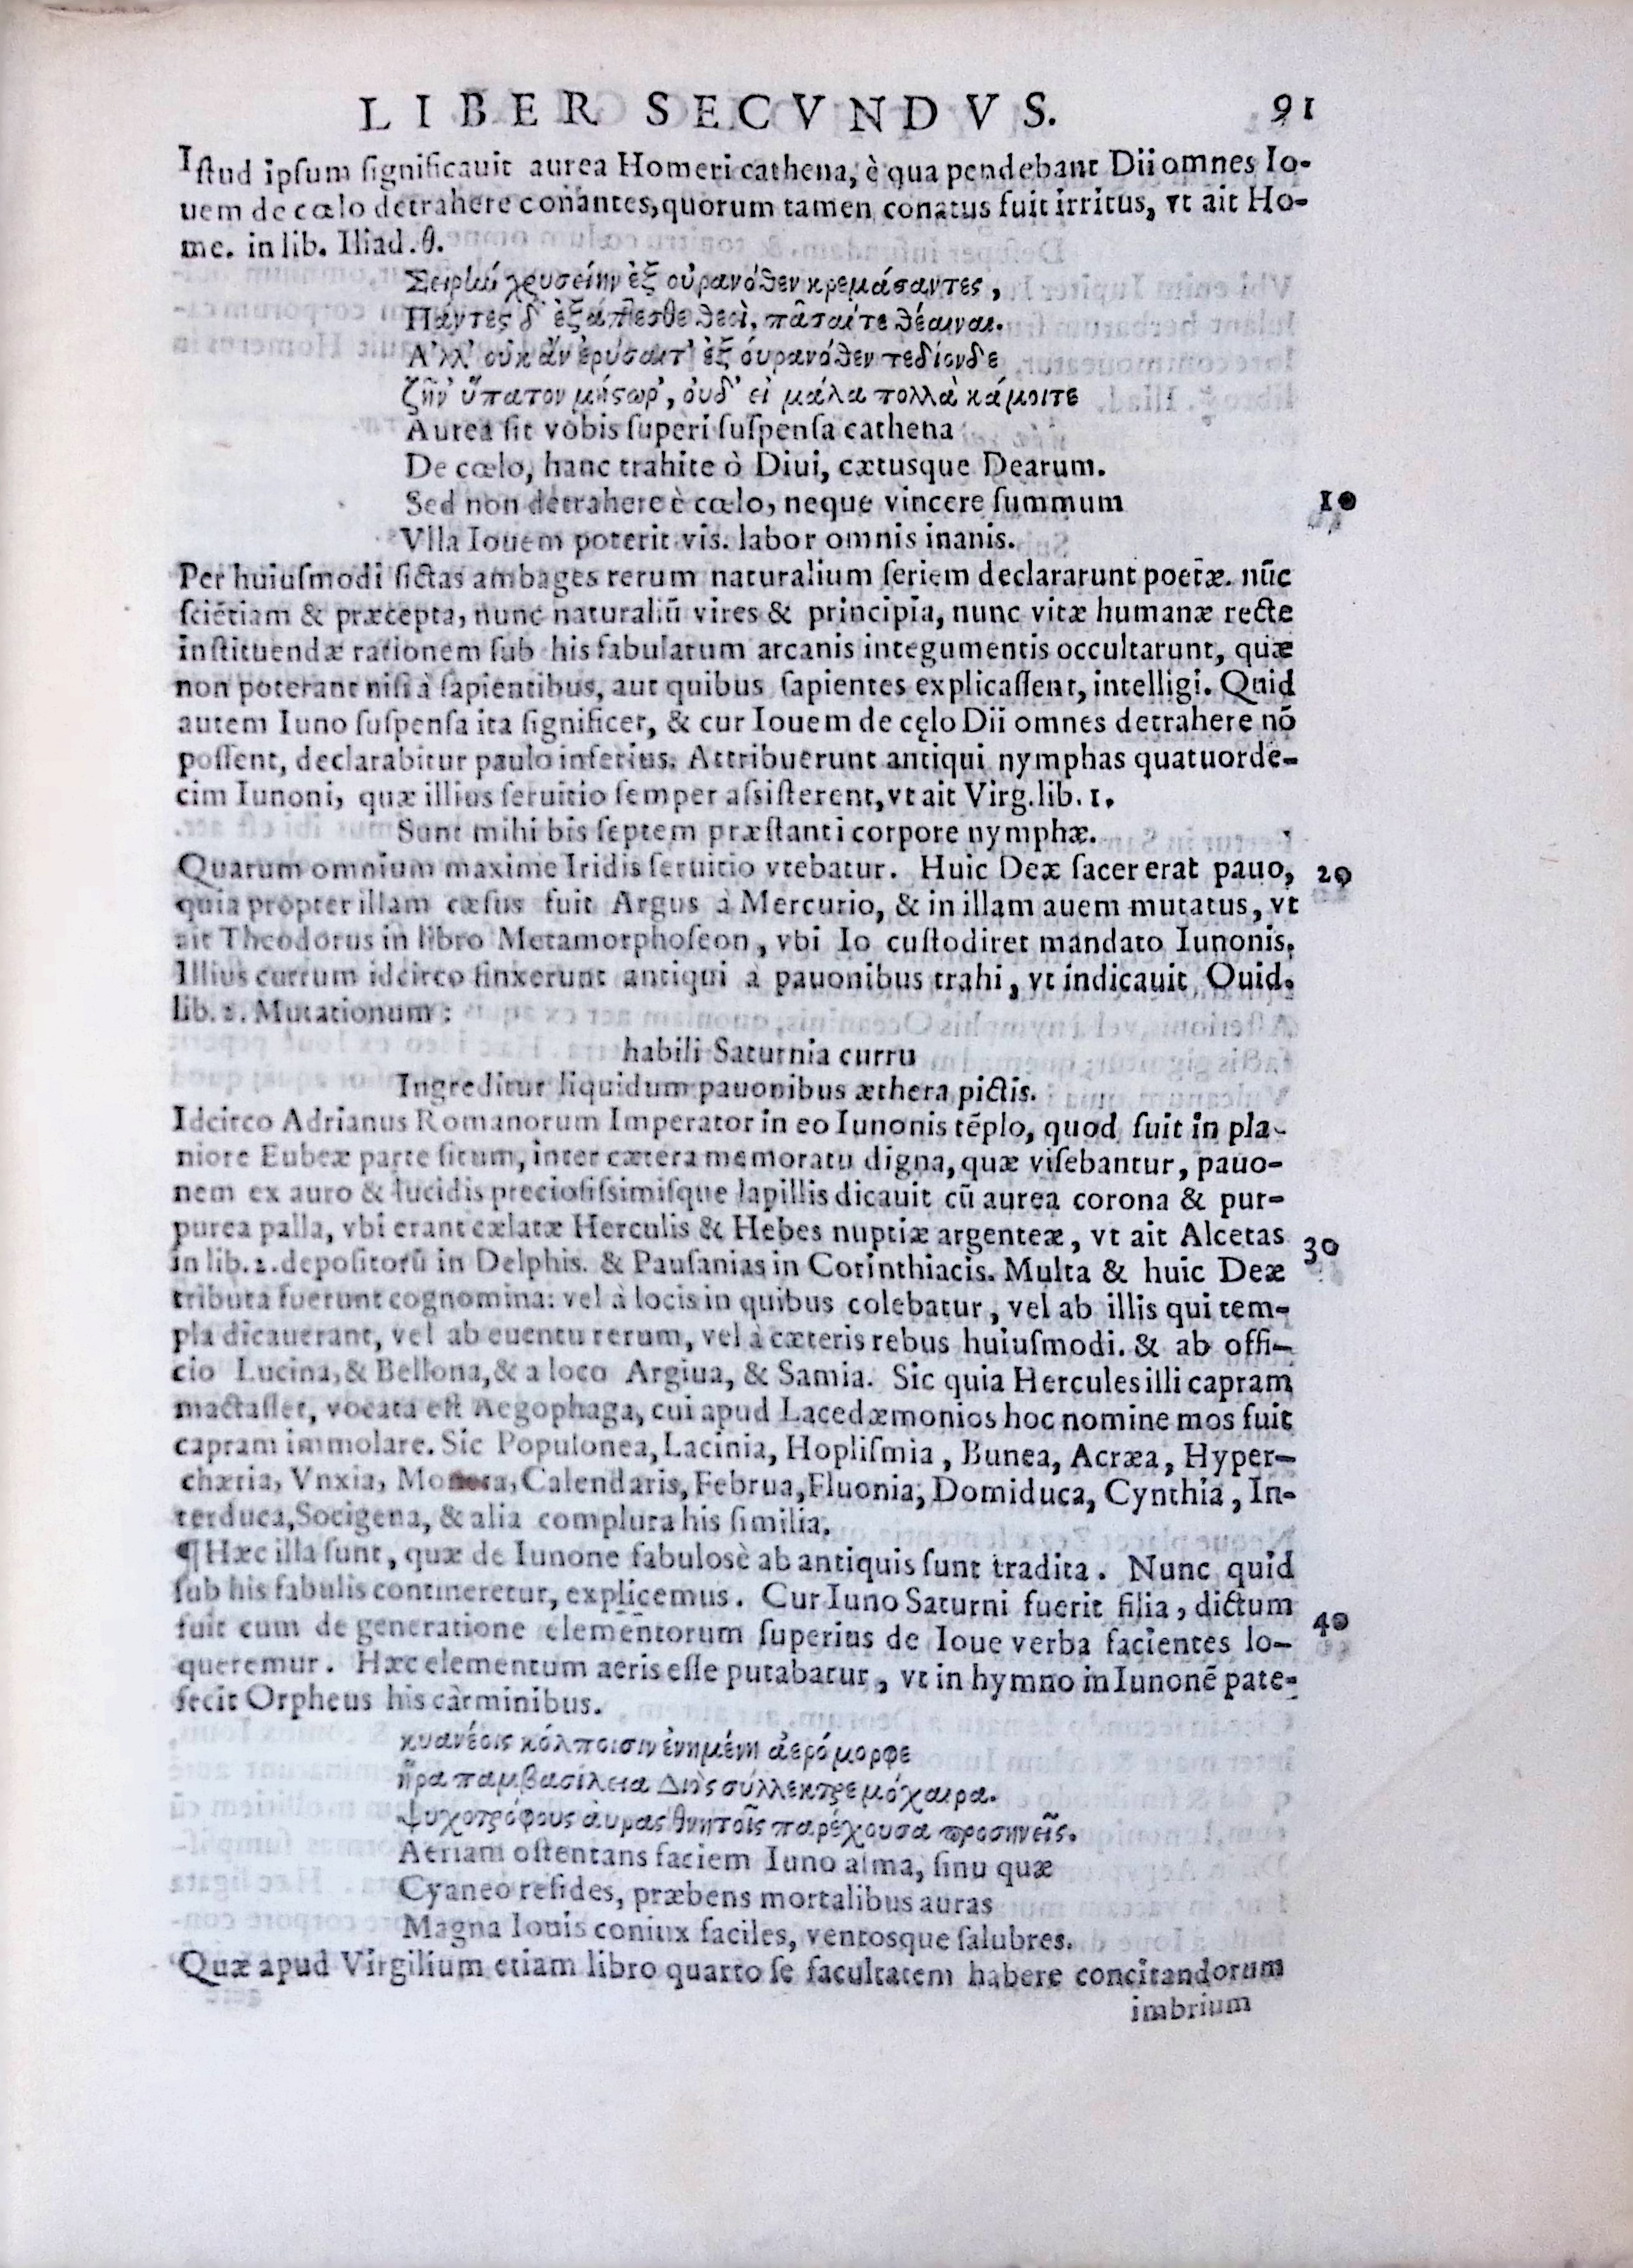 LIBER SECVNDVS. 91
Iſtud ipſum ſignificauit aurea Homeri cathena, è qua pendebant Dii omnes Io-
uem de cœlo detrahere conantes, quorum tamen conatus fuit irritus, vt ait Ho-
me. in lib. Iliad. θ.
Σειρὴν χρυσείην ἐξ οὐρανόθεν κρεμάσαντες,
Πάντες δ' ἐξάπτεσθε θεοὶ, πᾶσαί τε θέαιναι.
Α'λλ' οὐκ ἂν ἐρύσαιτ' ἐξ ὀυρανόθεν πεδίονδε
ζῆν' ὕπατον μήστωρ', ὀυδ' εἰ μάλα πολλὰ κάμοιτε
Aurea ſit vobis ſuperi ſuſpenſa cathena
De cœlo, hanc trahite ò Diui, cætusque Dearum.
Sed non detrahere è cœlo, neque vincere ſummum 10
Vlla Iouem poterit vis. labor omnis inanis.
Per huiuſmodi fictas ambages rerum naturalium ſeriem declararunt poetæ. nūc
ſciētiam & præcepta, nunc naturaliū vires & principia, nunc vitæ humanæ recte
inſtituendæ rationem ſub his fabularum arcanis integumentis occultarunt, quæ
non poterant niſi à ſapientibus, aut quibus ſapientes explicaſſent, intelligi. Quid
autem Iuno ſuſpenſa ita ſignificet, & cur Iouem de cęlo Dii omnes detrahere nō
poſſent, declarabitur paulo inferius. Attribuerunt antiqui nymphas quatuorde-
cim Iunoni, quæ illius ſeruitio ſemper aſſiſterent, vt ait Virg. lib. 1.
Sunt mihi bis ſeptem præſtanti corpore nymphæ.
Quarum omnium maxime Iridis ſeruitio vtebatur. Huic Deæ ſacer erat pauo, 20
quia propter illam cæſus fuit Argus à Mercurio, & in illam auem mutatus, vt
ait Theodorus in libro Metamorphoſeon, vbi Io cuſtodiret mandato Iunonis.
Illius currum idcirco finxerunt antiqui à pauonibus trahi, vt indicauit Ouid.
lib. 2. Mutationum:
habili Saturnia curru
Ingreditur liquidum pauonibus æthera pictis.
Idcirco Adrianus Romanorum Imperator in eo Iunonis tēplo, quod fuit in pla-
niore Eubeæ parte ſitum, inter cætera memoratu digna, quæ viſebantur, pauo-
nem ex auro & lucidis precioſiſsimiſque lapillis dicauit cū aurea corona & pur-
purea palla, vbi erant cælatæ Herculis & Hebes nuptiæ argenteæ, vt ait Alcetas 30
in lib. 2. depoſitorū in Delphis. & Pauſanias in Corinthiacis. Multa & huic Deæ
tributa fuerunt cognomina: vel à locis in quibus colebatur, vel ab illis qui tem-
pla dicauerant, vel ab euentu rerum, vel à cæteris rebus huiuſmodi. & ab offi-
cio Lucina, & Bellona, & a loco Argiua, & Samia. Sic quia Hercules illi capram
mactaſſet, vocata eſt Aegophaga, cui apud Lacedæmonios hoc nomine mos fuit
capram immolare. Sic Populonea, Lacinia, Hopliſmia, Bunea, Acræa, Hyper-
chæria, Vnxia, Calendaris, Februa, Fluonia, Domiduca, Cynthia, In-
terduca, Socigena, & alia complura his ſimilia.
¶ Hæc illa ſunt, quæ de Iunone fabulosè ab antiquis ſunt tradita. Nunc quid
ſub his fabulis contineretur, explicemus. Cur Iuno Saturni fuerit filia, dictum
fuit cum de generatione elementorum ſuperius de Ioue verba facientes lo- 40
queremur. Hæc elementum aeris eſſe putabatur, vt in hymno in Iunonē pate-
fecit Orpheus his carminibus.
κυανέοις κόλποισιν ἐνημένη ἀερόμορφε
ἥρα παμβασίλεια Διὸς σύλλεκτρε μόχαιρα.
Ψυχοτρόφους ἀυρας θνητοῖς παρέχουσα προσηνεῖς.
Aeriam oſtentans faciem Iuno alma, ſinu quæ
Cyaneo reſides, præbens mortalibus auras
Magna Iouis coniux faciles, ventosque ſalubres.
Quæ apud Virgilium etiam libro quarto ſe facultatem habere concitandorum
imbrium